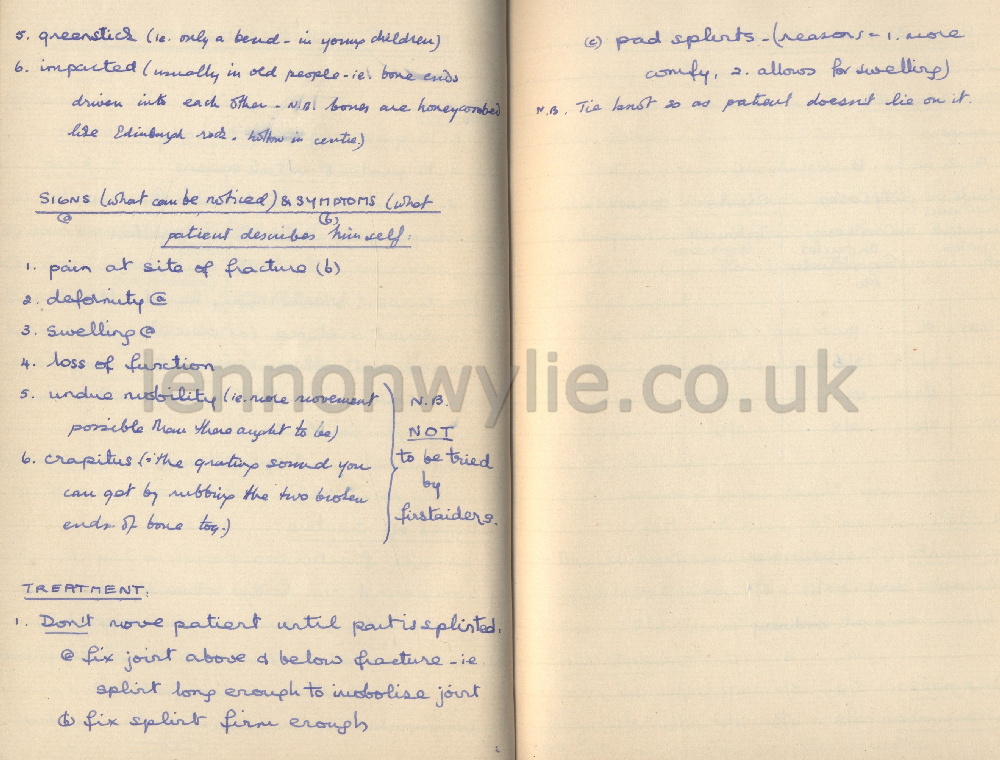 5. greenstick (ie. only a bend - in young children)
6. impacted (usually in old people - ie. bone ends
driven into each other - N.B. bones are honeycombed
like Edinburgh rock - hollow in centre.)
SIGNS (what can be noticed) & SYMPTOMS (what
(a) (b)
patient describes himself:
1. pain at site of fracture (b)
2. deformity (a)
3. swelling (a)
4. loss of function
5. undue mobility (ie. more movement
possible than there aught to be)
6. crapitus (= the grating sound you
can get by rubbing the two broken
ends of bone tog.)
N.B.
NOT
to be tried
by
firstaiders.
TREATMENT.
1. Don't move patient until part is splinted.
(a) fix joint above & below fracture - ie
splint long enough to imobolise joint
(b) fix splint firm enough
(c) pad splints - (reasons = 1. more
comfy, 2. allows for swelling)
N.B. Tie knot so as patient doesn't lie on it.
lennonwylie.co.uk